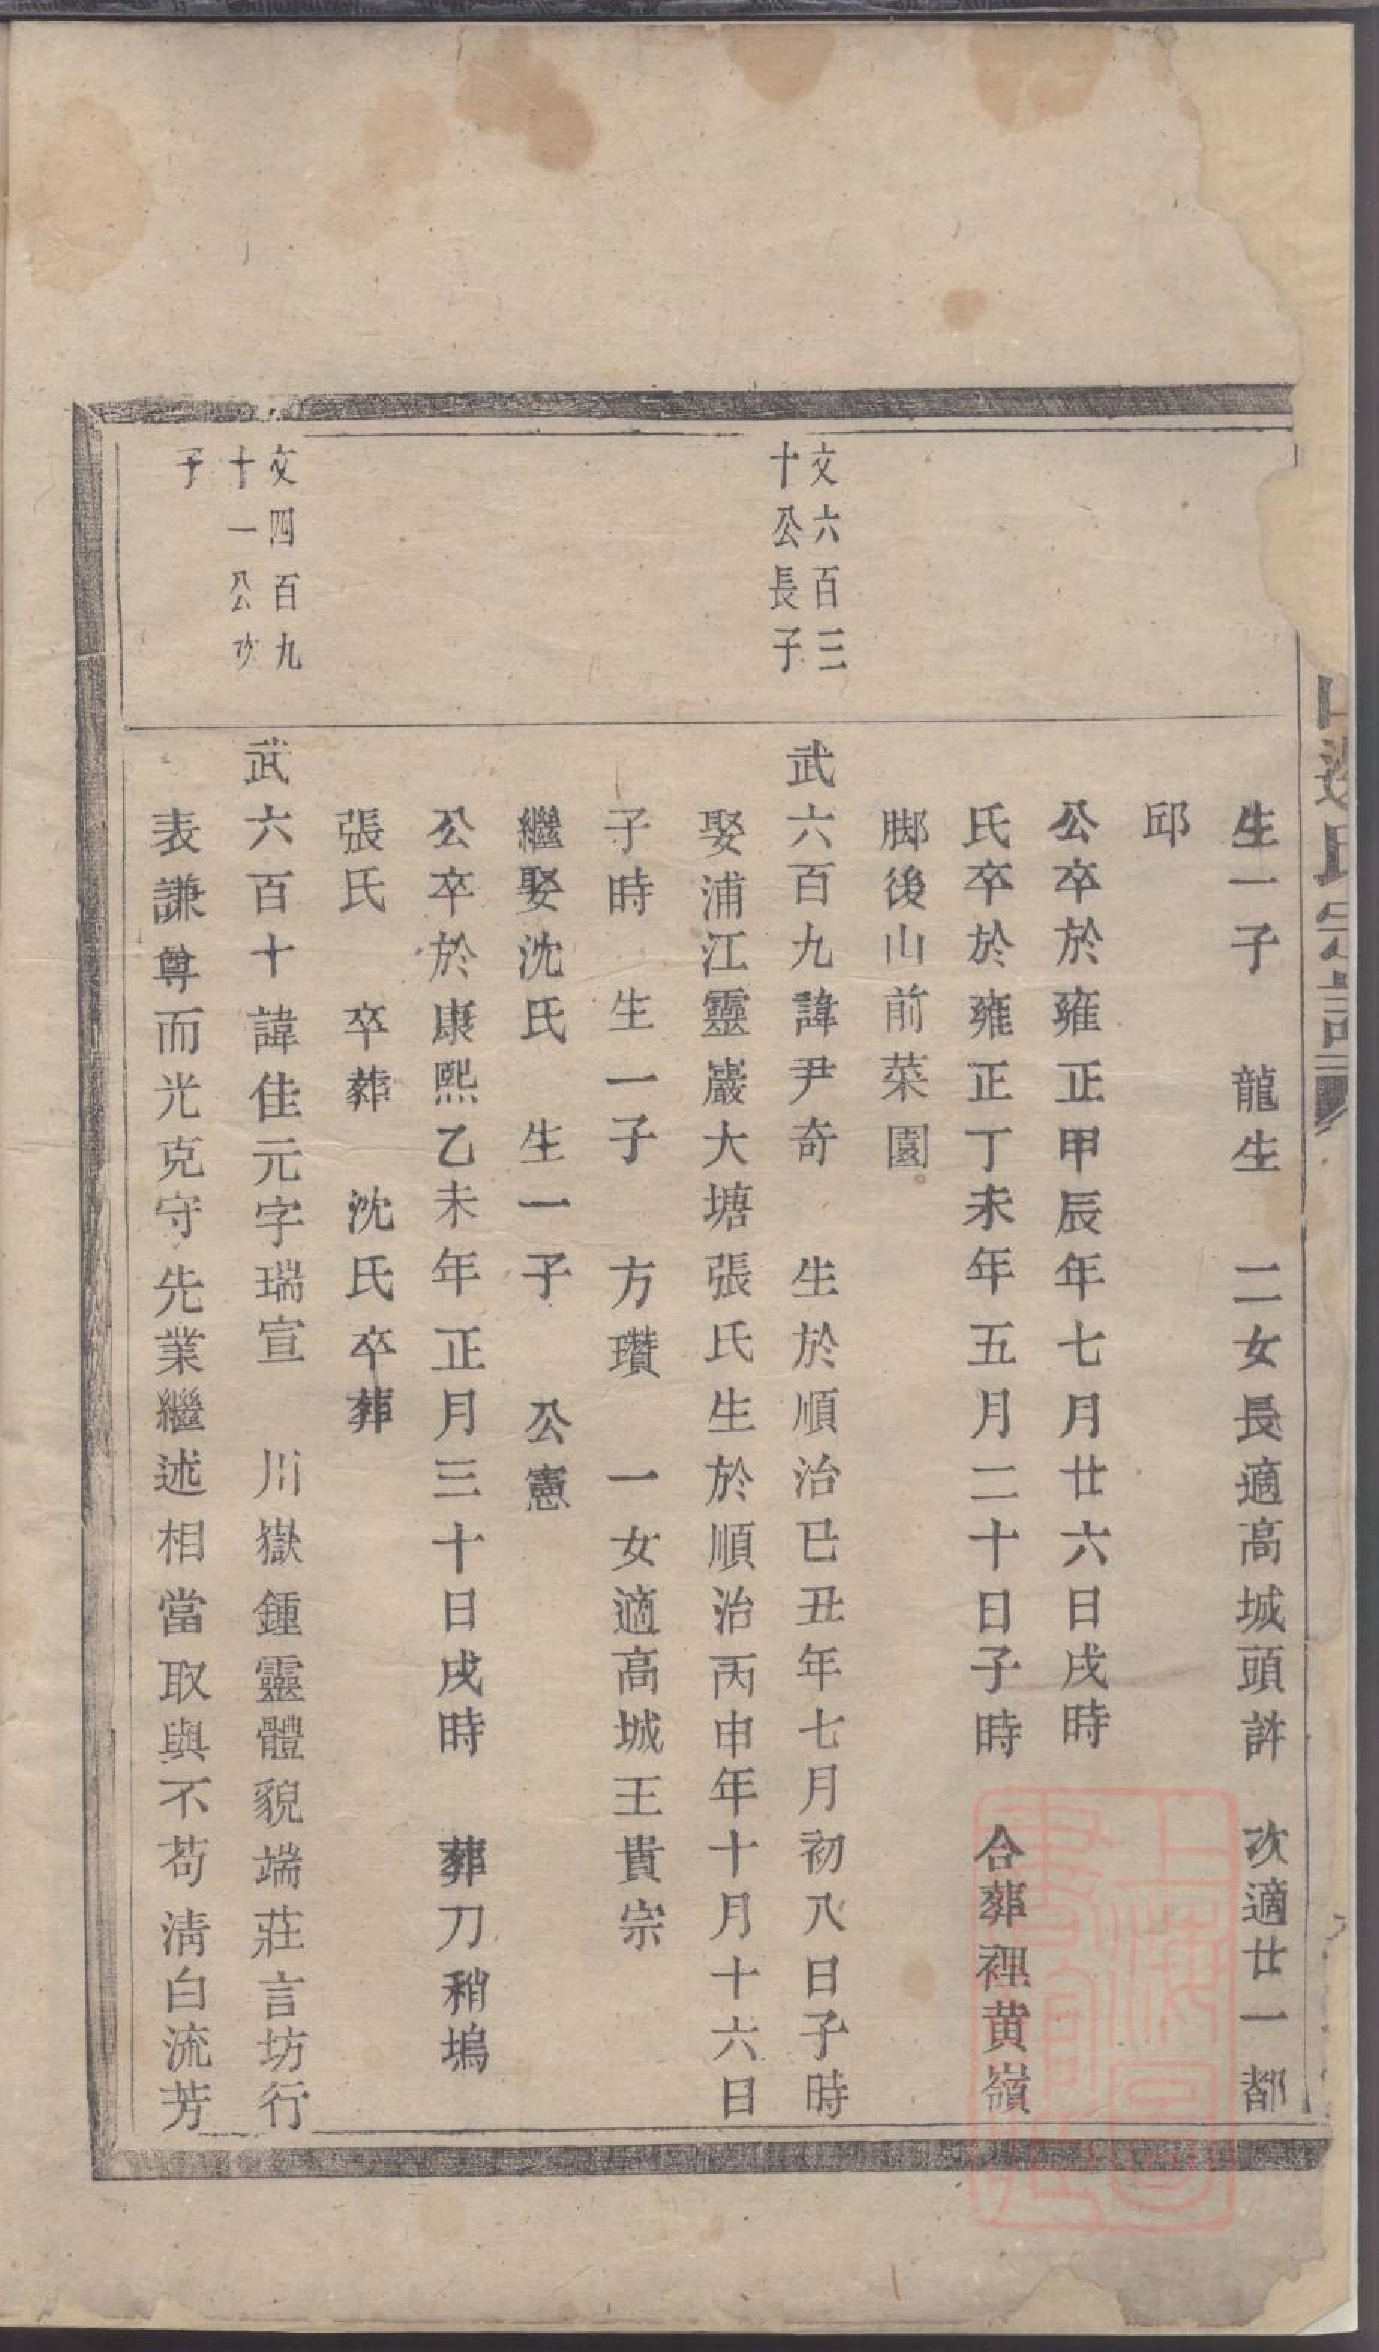 生一子　龍生　二女長適高城頭許　次適廿一都
邱
公卒於雍正甲辰年七月廿六日戌時
氏卒於雍正丁未年五月二十日子時　合葬裡黄嶺
脚後山前菜園
文六百三
十公長子
武六百九諱尹奇　生於順治己丑年七月初八日子時
娶浦江靈巖大塘張氏生於順治丙申年十月十六日
子時　生一子　方瓚　一女適高城王貴宗
繼娶沈氏　生一子　公憲
公卒於康熙乙未年正月三十日戌時　葬刀稍塢
張氏　卒葬　沈氏卒葬
文四百九
十一公次
子
武六百十諱佳元字瑞宣　川嶽鍾靈體貌端莊言坊行
表謙尊而光克守先業繼述相當取與不苟淸白流芳